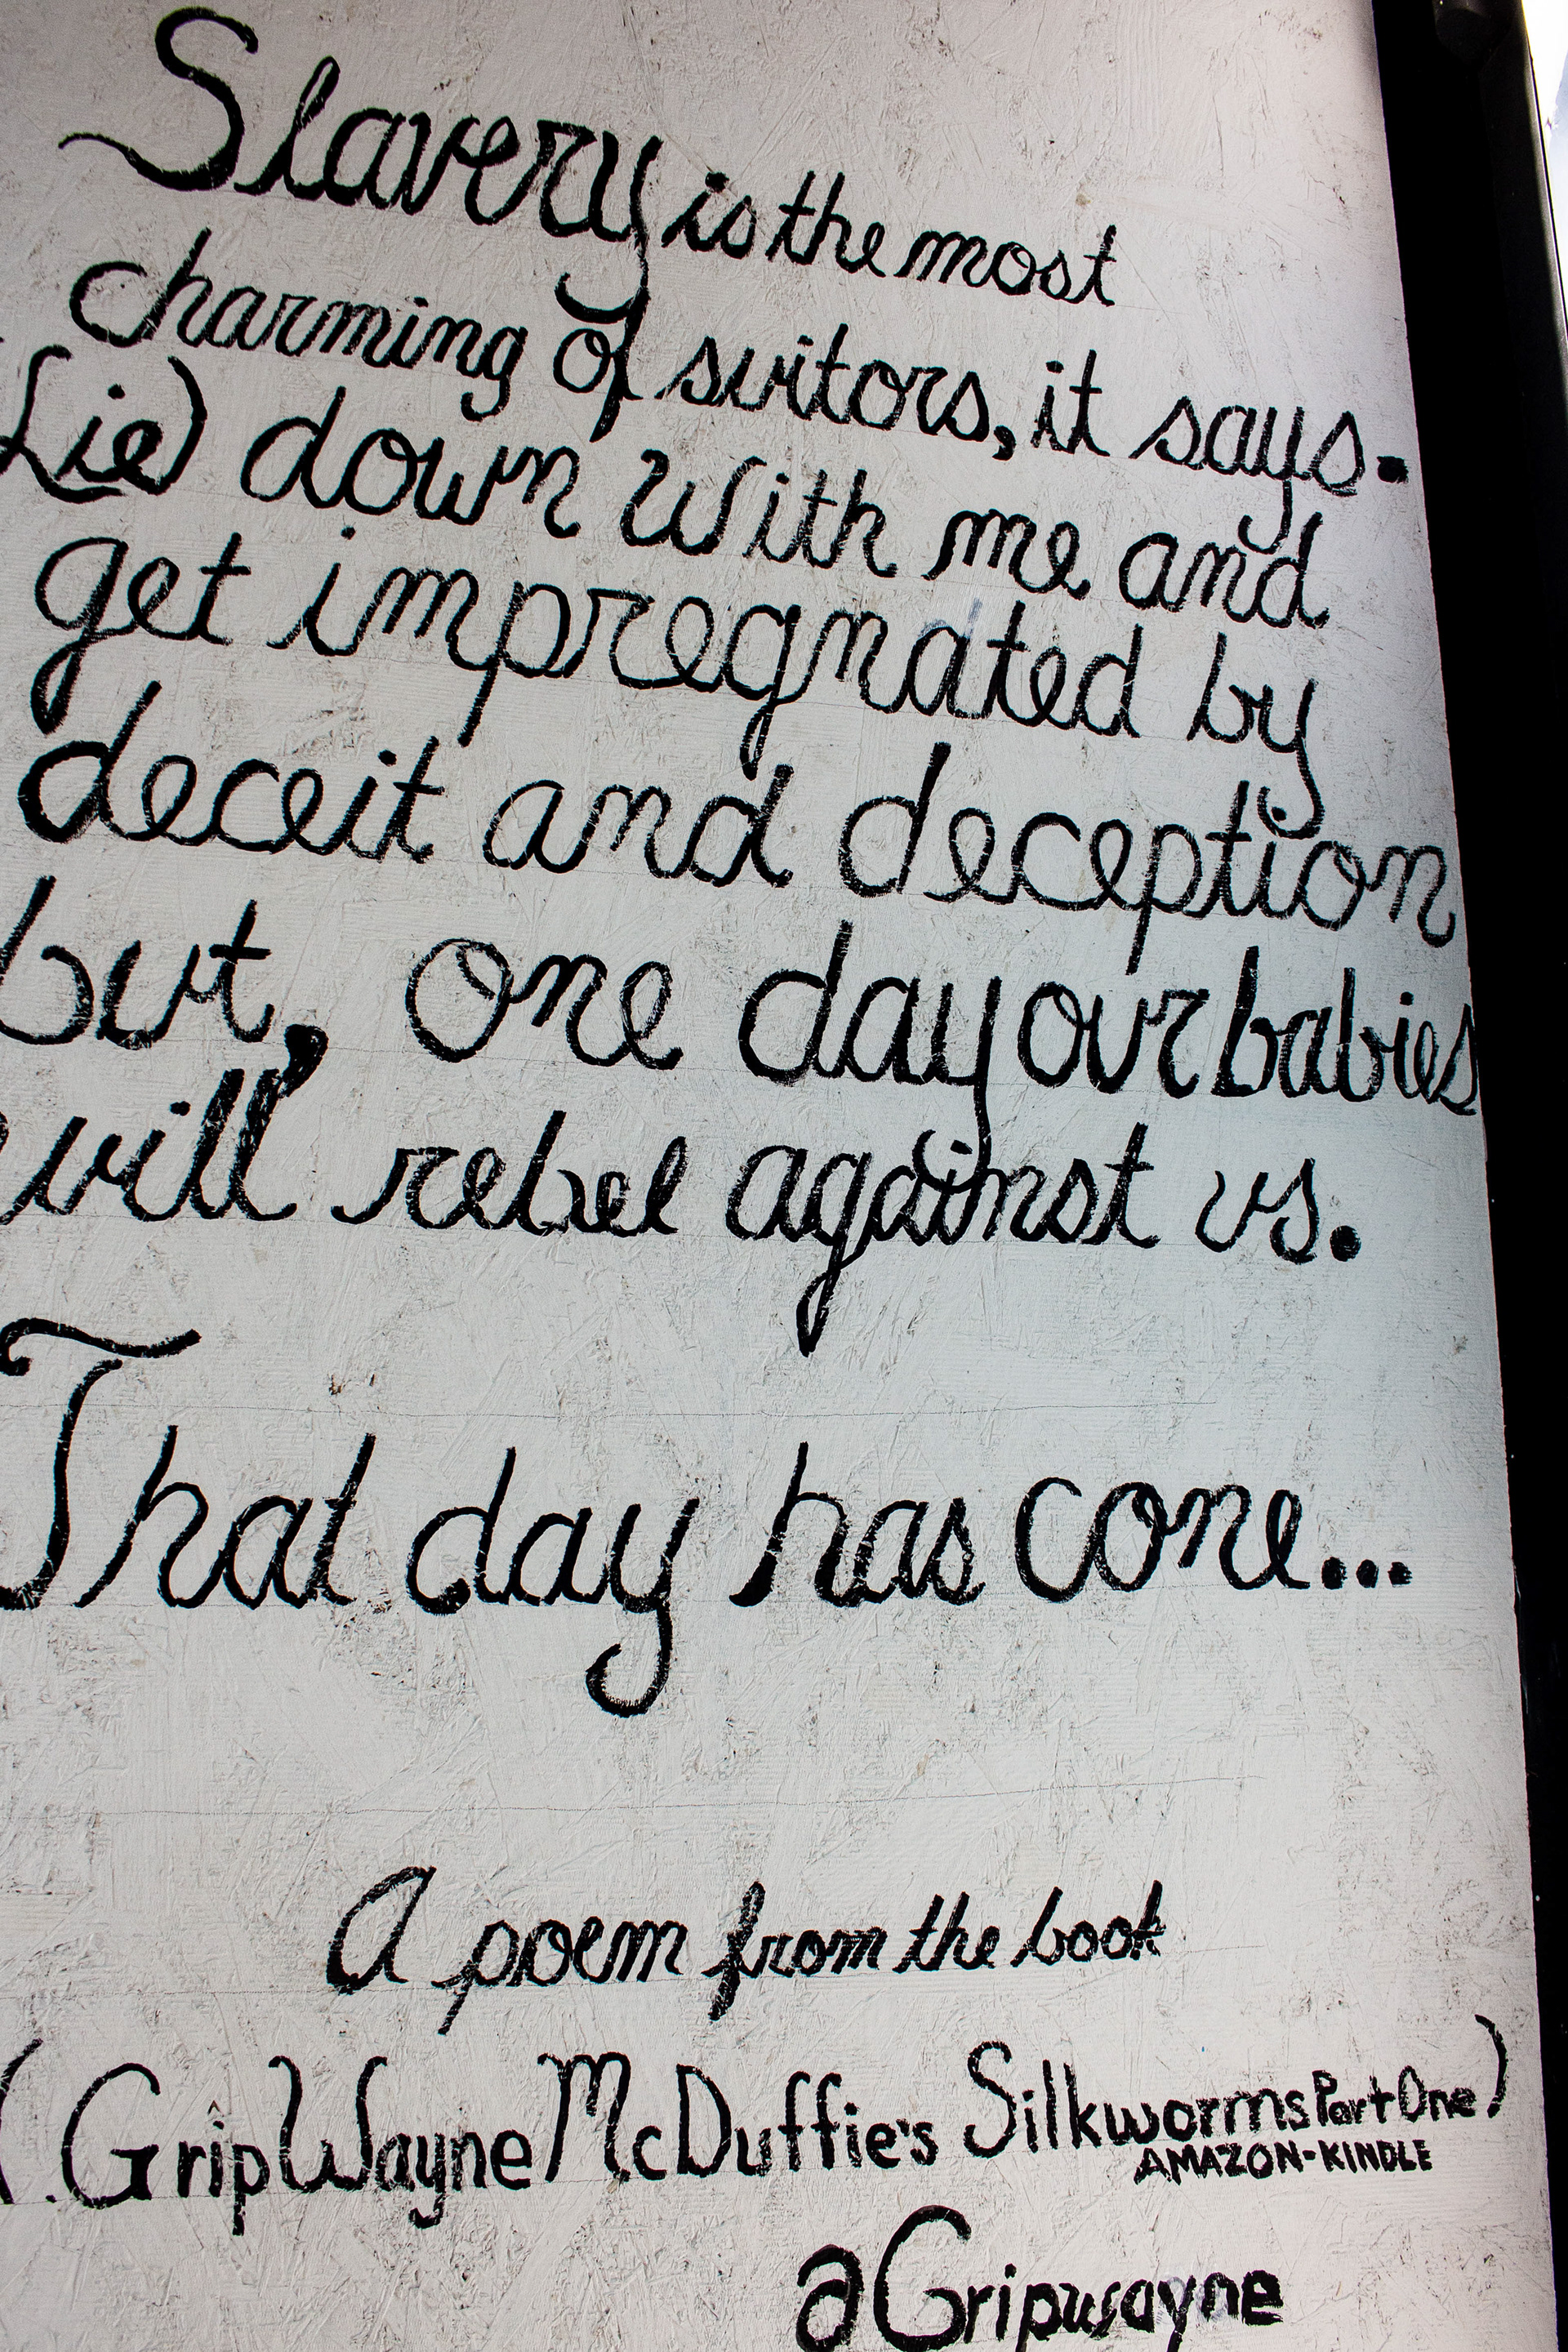 Slavery is the most
charming of suitors, it says.
(Lie) down with me and
get impregnated by
deceit and deception
but, one day our babies
will rebel against us.
That day has come...
A poem from the book
(Grip Wayne McDuffie's Silkworms Part One)
AMAZON-KINDLE
@Gripwayne